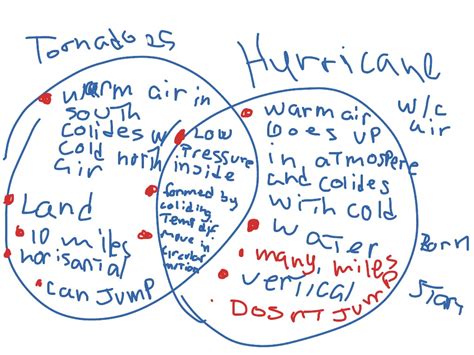 Tornadoes
Hurricane
warm air in
south
colides w
cold
air north
Land
10 miles
horisantal
can Jump
Low
Pressure
inside
formed by
coliding
Temp dif
move in
circular
motion
warm air
Goes up
in atmospere
and colides
with cold
water
many, miles
vertical
Doesnt Jump
w/c
air
Born